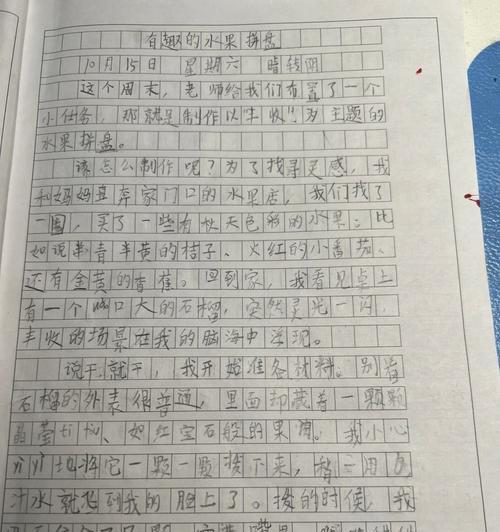 有趣的水果拼盘
10月15日 星期六 晴转阴
这个周末，老师给我们布置了一个
小任务，那就是制作以"丰收"为主题的
水果拼盘。
该怎么制作呢？为了找寻灵感，我
和妈妈直奔家门口的水果店，我们找了
一圈，买了一些有秋天色彩的水果：比
如说半青半黄的桔子、火红的小番茄、
还有金黄的香蕉。回到家，我看见桌上
有一个碗口大的石榴，突然灵光一闪，
丰收的场景在我的脑海中浮现。
说干就干，我开始准备材料。别看
石榴的外表很普通，里面却藏着一颗颗
晶莹tī tòu、如红宝石般的果肉。我小心
yì yì地将它一颗一颗拨下来，稍一用力
汁水就飞到我的脸上了。拨的时候，我